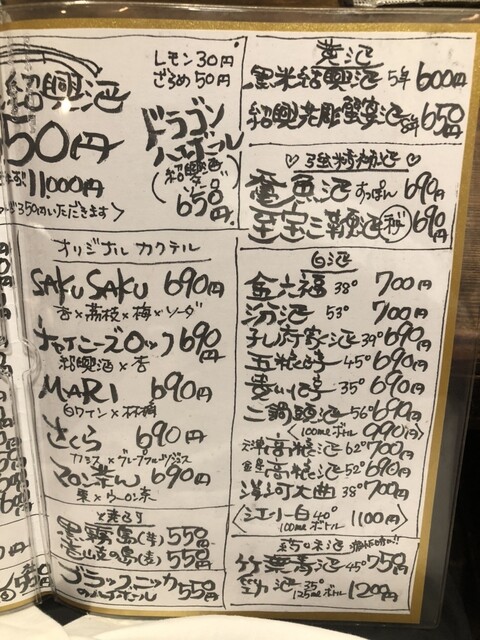 紹興酒
50円
11000円
350円いただきます〉
レモン30円
ざらめ50円
ドラゴン
ハイボール
(紹興酒
ソーダ)
650円
オリジナルカクテル
SAKUSAKU 690円
杏×荔枝×梅×ソーダ
チャイニーズロック690円
紹興酒×杏
MARI 690円
白ワイン×林檎
さくら 690円
カシス×グレープフルーツジュース
マロン茶ん690円
栗×ウーロン茶
黒霧島(芋) 550円
(麦) 550円
ブラックニッカ
のハイボール 550円
黄酒
黒米紹興酒5年600円
紹興花彫蟹宴酒8年650円
♡強精精力酒♡
すっぽん690円
至宝三鞭酒 690円
白酒
金六福38° 700円
汾酒53° 700円
孔府家酒39° 690円
五粮醇45° 690円
貴州醇35° 690円
二鍋頭酒56° 690円
〈100mlボトル 990円〉
天津高粮酒62° 700円
金門高粮酒52° 690円
洋河大曲38° 700円
〈江小白40° 1100円〉
100mlボトル
竹葉青酒45° 750円
勁酒35° 1200円
125mlボトル